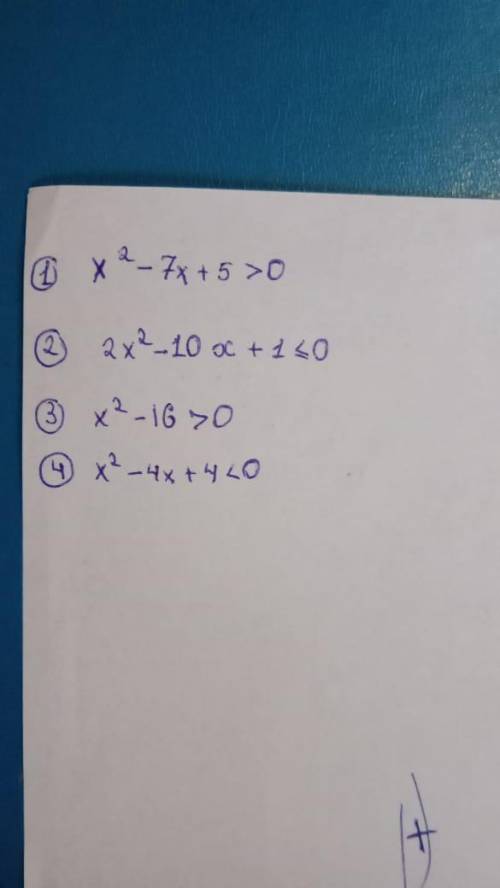 ① x² - 7x + 5 > 0
② 2x² - 10x + 1 ⩽ 0
③ x² - 16 > 0
④ x² - 4x + 4 < 0
+